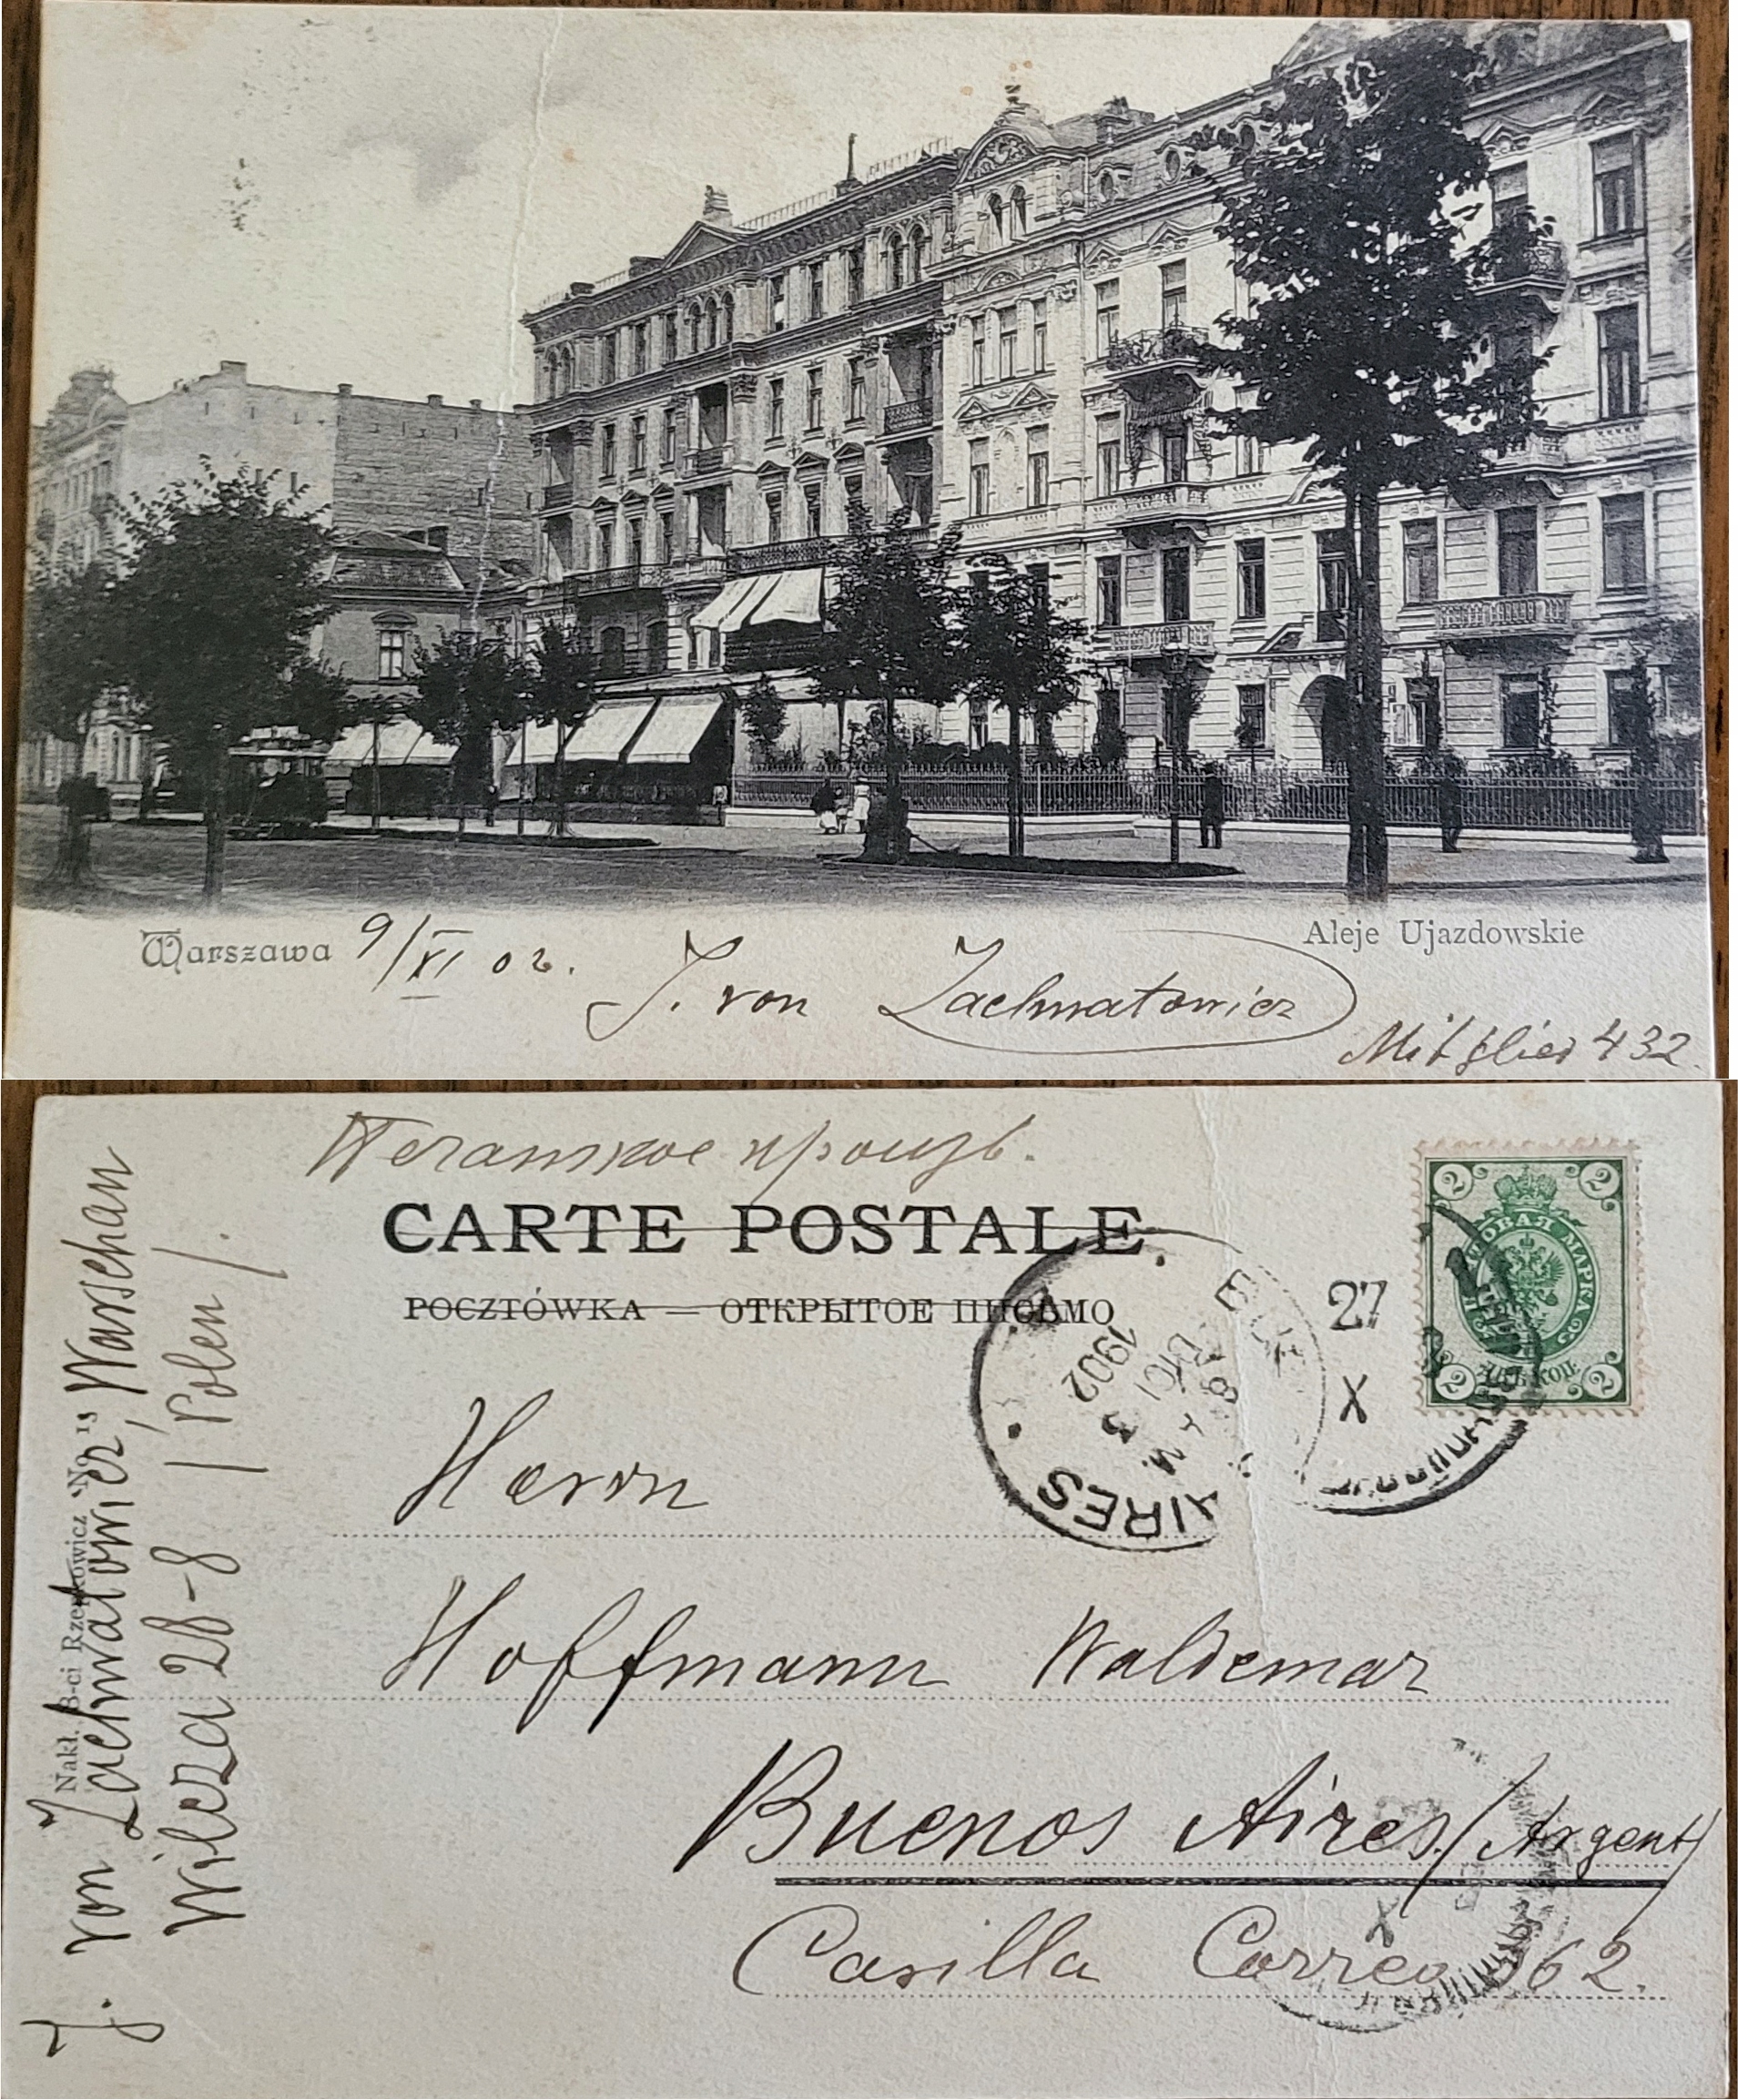 Warszawa 9/XI 02.
Aleje Ujazdowskie
J. von Zachwatowicz
Mitglied 432.
Печатное произв.
CARTE POSTALE.
POCZTÓWKA — ОТКРЫТОЕ ПИСЬМО
27
X
2 2
ПОЧТОВАЯ МАРКА
ДВѢ КОП.
2 2
BUENOS AIRES
8 A M.
DIC 3
1902
Herrn
Hoffmann Waldemar
Buenos Aires. / Argent /
Casilla Correo 962.
X
Nakł. B-ci Rzepkowicz No 15
J. von Zachwatowicz, Warschau
Wilcza 28-8 / Polen /.